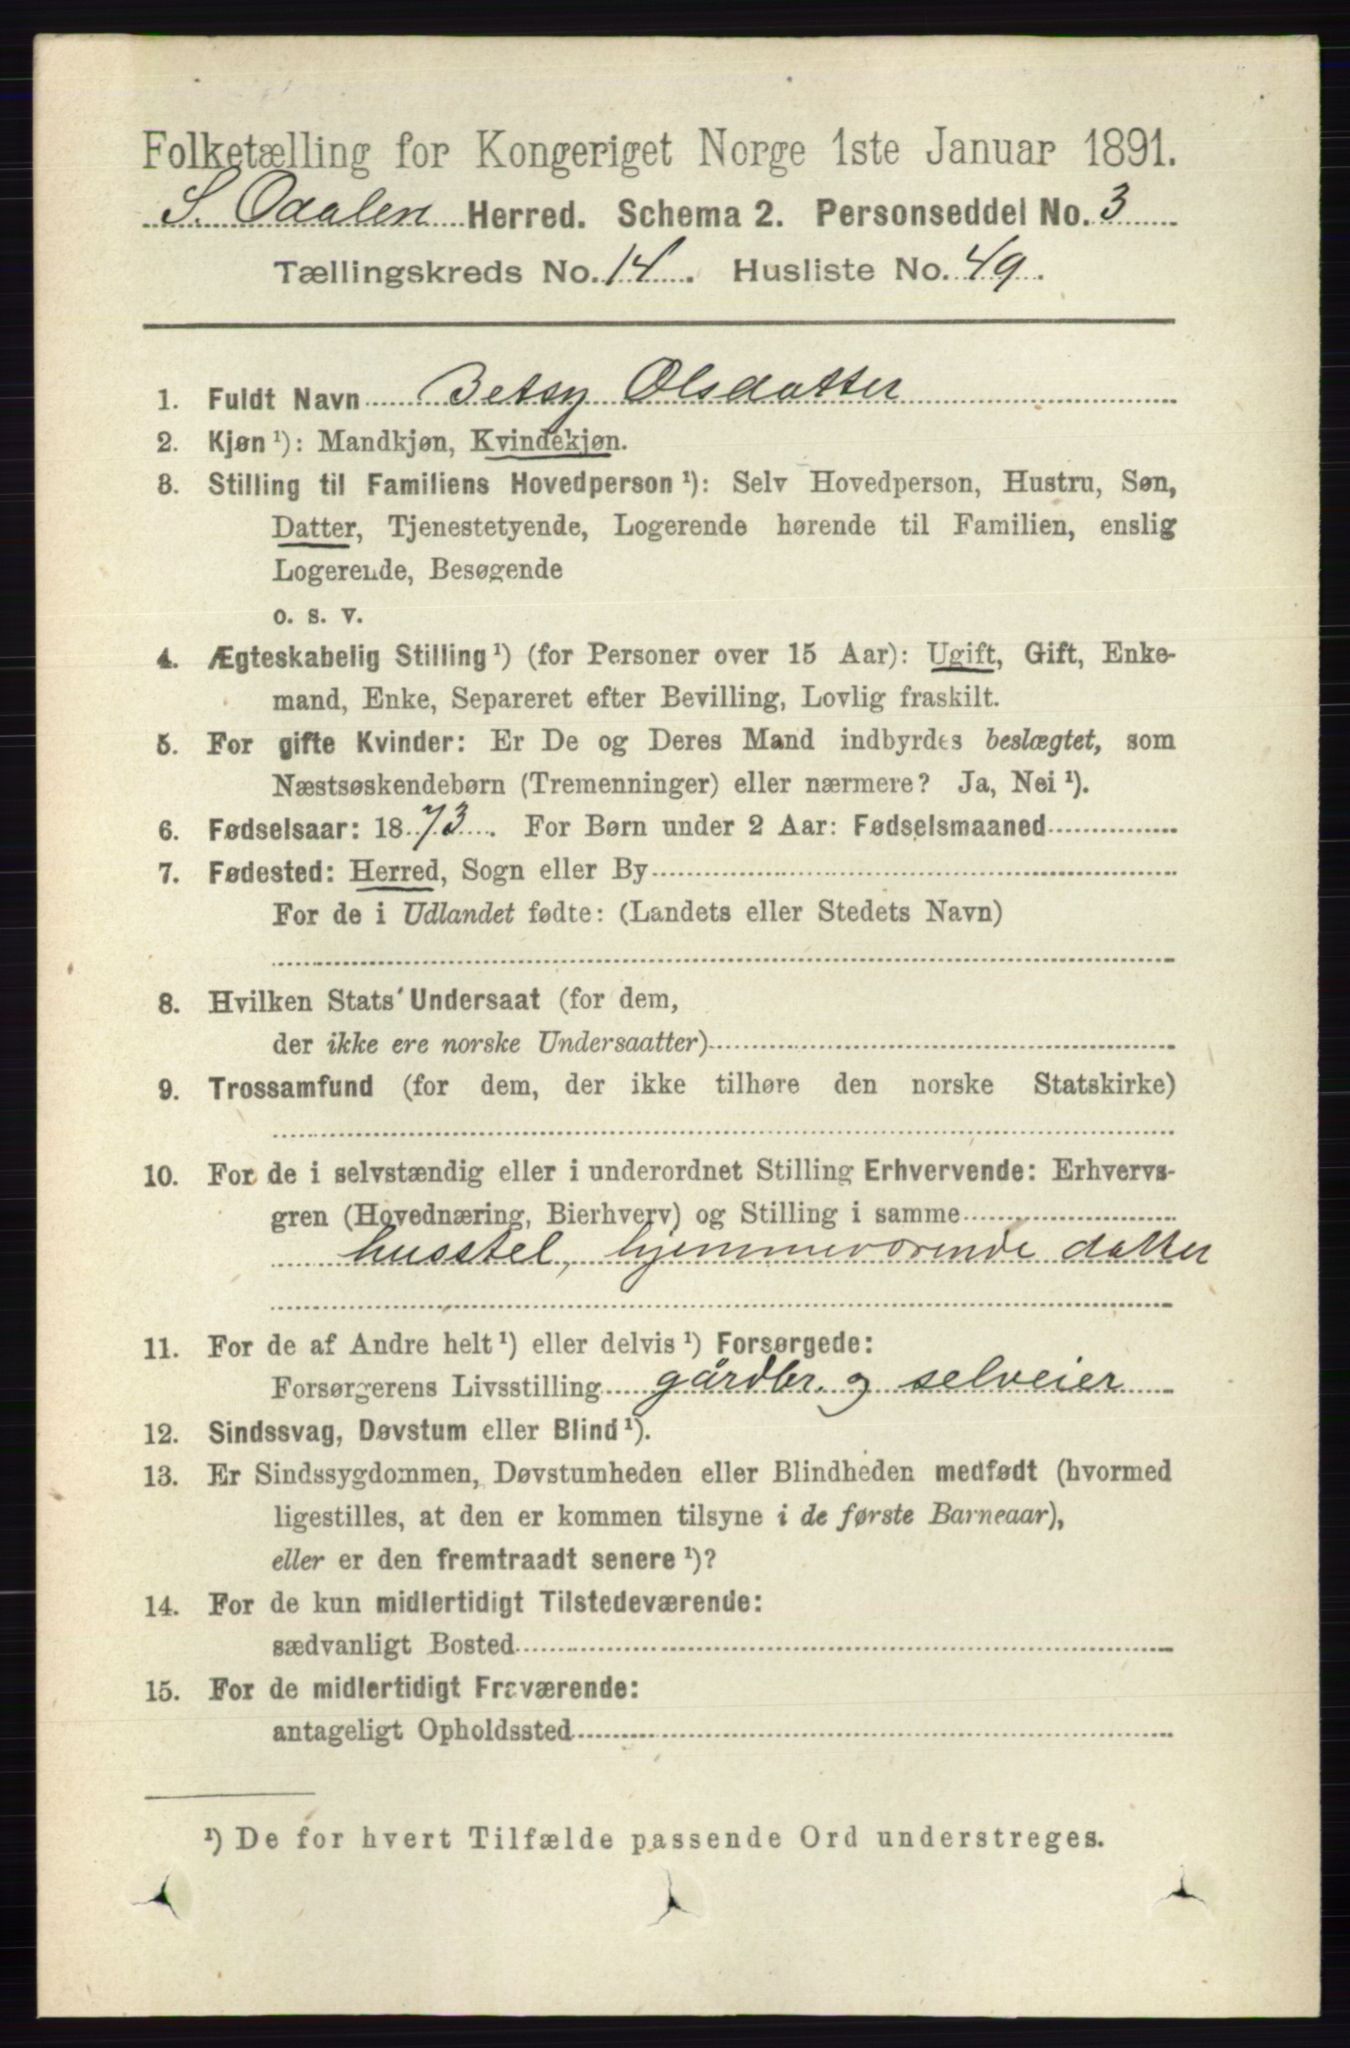 Folketælling for Kongeriget Norge 1ste Januar 1891.
S. Odalen Herred. Schema 2. Personseddel No. 3
Tællingskreds No. 14. Husliste No. 49.
1. Fuldt Navn Betsy Olsdatter
2. Kjøn ¹): Mandkjøn, Kvindekjøn.
3. Stilling til Familiens Hovedperson ¹): Selv Hovedperson, Hustru, Søn,
Datter, Tjenestetyende, Logerende hørende til Familien, enslig
Logerende, Besøgende
o. s. v.
4. Ægteskabelig Stilling ¹) (for Personer over 15 Aar): Ugift, Gift, Enke-
mand, Enke, Separeret efter Bevilling, Lovlig fraskilt.
5. For gifte Kvinder: Er De og Deres Mand indbyrdes beslægtet, som
Næstsøskendebørn (Tremenninger) eller nærmere? Ja, Nei ¹).
6. Fødselsaar: 1873. For Børn under 2 Aar: Fødselsmaaned
7. Fødested: Herred, Sogn eller By
For de i Udlandet fødte: (Landets eller Stedets Navn)
8. Hvilken Stats Undersaat (for dem,
der ikke ere norske Undersaatter)
9. Trossamfund (for dem, der ikke tilhøre den norske Statskirke)
10. For de i selvstændig eller i underordnet Stilling Erhvervende: Erhvervs-
gren (Hovednæring, Bierhverv) og Stilling i samme
husstel, hjemmeværende datter
11. For de af Andre helt ¹) eller delvis ¹) Forsørgede:
Forsørgerens Livsstilling gårdbr. og selveier
12. Sindssvag, Døvstum eller Blind ¹).
13. Er Sindssygdommen, Døvstumheden eller Blindheden medfødt (hvormed
ligestilles, at den er kommen tilsyne i de første Barneaar),
eller er den fremtraadt senere ¹)?
14. For de kun midlertidigt Tilstedeværende:
sædvanligt Bosted
15. For de midlertidigt Fraværende:
antageligt Opholdssted
¹) De for hvert Tilfælde passende Ord understreges.